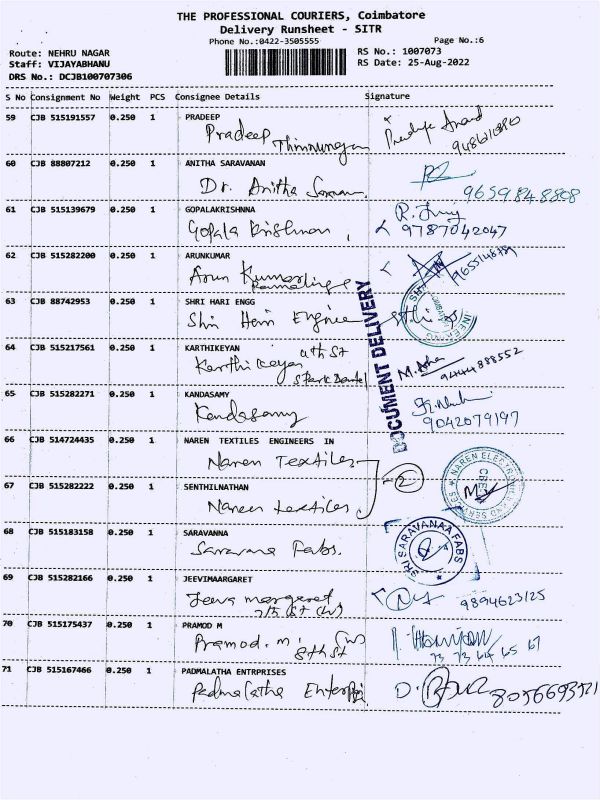 THE PROFESSIONAL COURIERS, Coimbatore
Delivery Runsheet - SITR
Phone No.:0422-3505555
Page No.:6
Route: NEHRU NAGAR
RS No.: 1007073
Staff: VIJAYABHANU
RS Date: 25-Aug-2022
DRS No.: DCJB100707306
S No Consignment No Weight PCS Consignee Details Signature
59 CJB 515191557 0.250 1 PRADEEP
Pradeep
60 CJB 88807212 0.250 1 ANITHA SARAVANAN
Dr. Anitha
9659848808
61 CJB 515139679 0.250 1 GOPALAKRISHNNA
Gopala Krishnan
9787042047
62 CJB 515282200 0.250 1 ARUNKUMAR
Arun Kumar
63 CJB 88742953 0.250 1 SHRI HARI ENGG
Shri Hari
64 CJB 515217561 0.250 1 KARTHIKEYAN
Karthikeyan 4th St
9444888552
65 CJB 515282271 0.250 1 KANDASAMY
Kandasamy
9042079197
DOCUMENT DELIVERY
66 CJB 514724435 0.250 1 NAREN TEXTILES ENGINEERS IN
Naren Textiles
2
67 CJB 515282222 0.250 1 SENTHILNATHAN
Naren textiles
NAREN ELECTRONICS AND SERVICES
CBE
68 CJB 515183158 0.250 1 SARAVANNA
Saravana Fabs.
SRI SARAVANAA FABS
69 CJB 515282166 0.250 1 JEEVIMAARGARET
Jeeva margeret
9894623125
70 CJB 515175437 0.250 1 PRAMOD M
Pramod. m. (W)
8th St
73 73 64 65 67
71 CJB 515167466 0.250 1 PADMALATHA ENTRPRISES
Padmalatha
8056693521